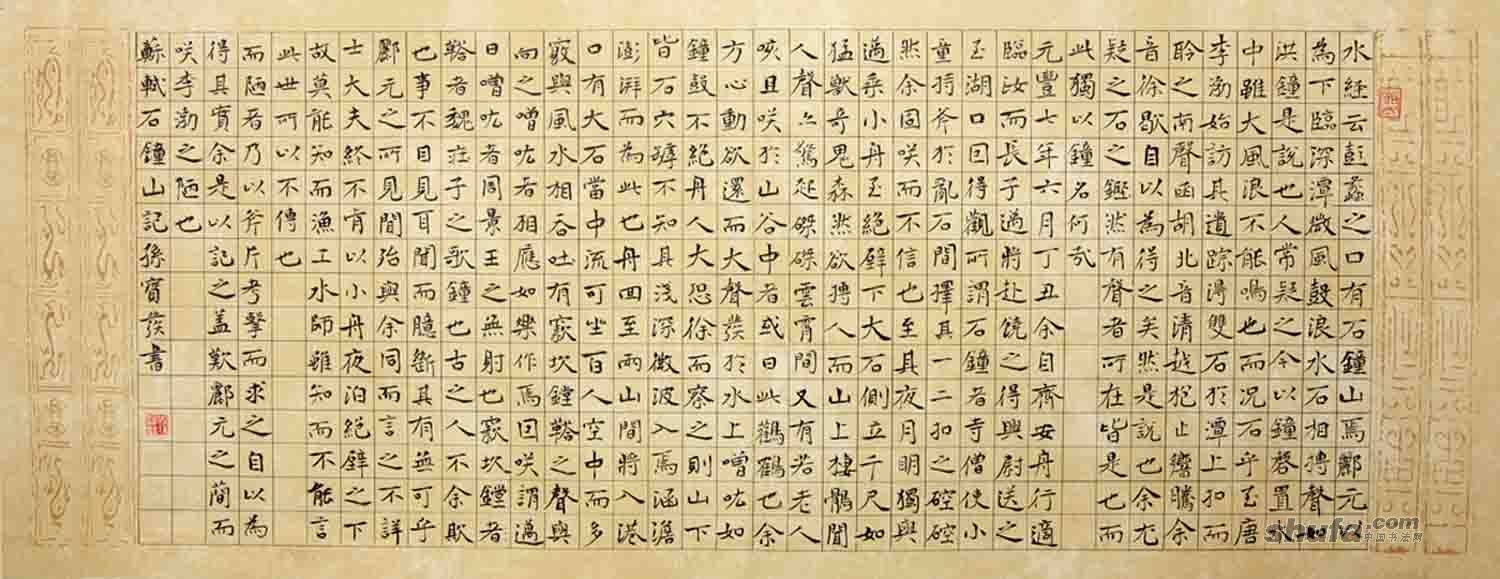 水経云彭蠡之口有石鐘山焉酈元以
為下臨深潭微風鼓浪水石相搏聲如
洪鐘是說也人常疑之今以鐘磬置水
中雖大風浪不能鳴也而況石乎至唐
李渤始訪其遺踪得雙石於潭上扣而
聆之南聲函胡北音清越枹止響騰余
音徐歇自以為得之矣然是說也余尤
疑之石之鏗然有聲者所在皆是也而
此獨以鐘名何哉
元豐七年六月丁丑余自齊安舟行適
臨汝而長子邁將赴饒之得興尉送之
至湖口因得觀所謂石鐘者寺僧使小
童持斧於亂石間擇其一二扣之硿硿
然余固咲而不信也至其夜月明獨與
邁乘小舟至絕壁下大石側立千尺如
猛獸奇鬼森然欲搏人而山上棲鶻聞
人聲亦驚起磔磔雲霄間又有若老人
咳且咲於山谷中者或曰此鸛鶴也余
方心動欲還而大聲發於水上噌吰如
鐘鼓不絕舟人大恐徐而察之則山下
皆石穴罅不知其淺深微波入焉涵澹
澎湃而為此也舟回至兩山間將入港
口有大石當中流可坐百人空中而多
竅與風水相吞吐有窾坎鏜鞳之聲與
向之噌吰者相應如樂作焉因咲謂邁
曰噌吰者周景王之無射也窾坎鏜者
鞳者魏莊子之歌鐘也古之人不余欺
也事不目見耳聞而臆斷其有無可乎
酈元之所見聞殆與余同而言之不詳
士大夫終不肯以小舟夜泊絕壁之下
故莫能知而漁工水師雖知而不能言
此世所以不傳也
而陋者乃以斧斤考擊而求之自以為
得其實余是以記之蓋歎酈元之簡而
咲李渤之陋也
蘇軾石鐘山記孫寶發書
shufa.com
中国书法网